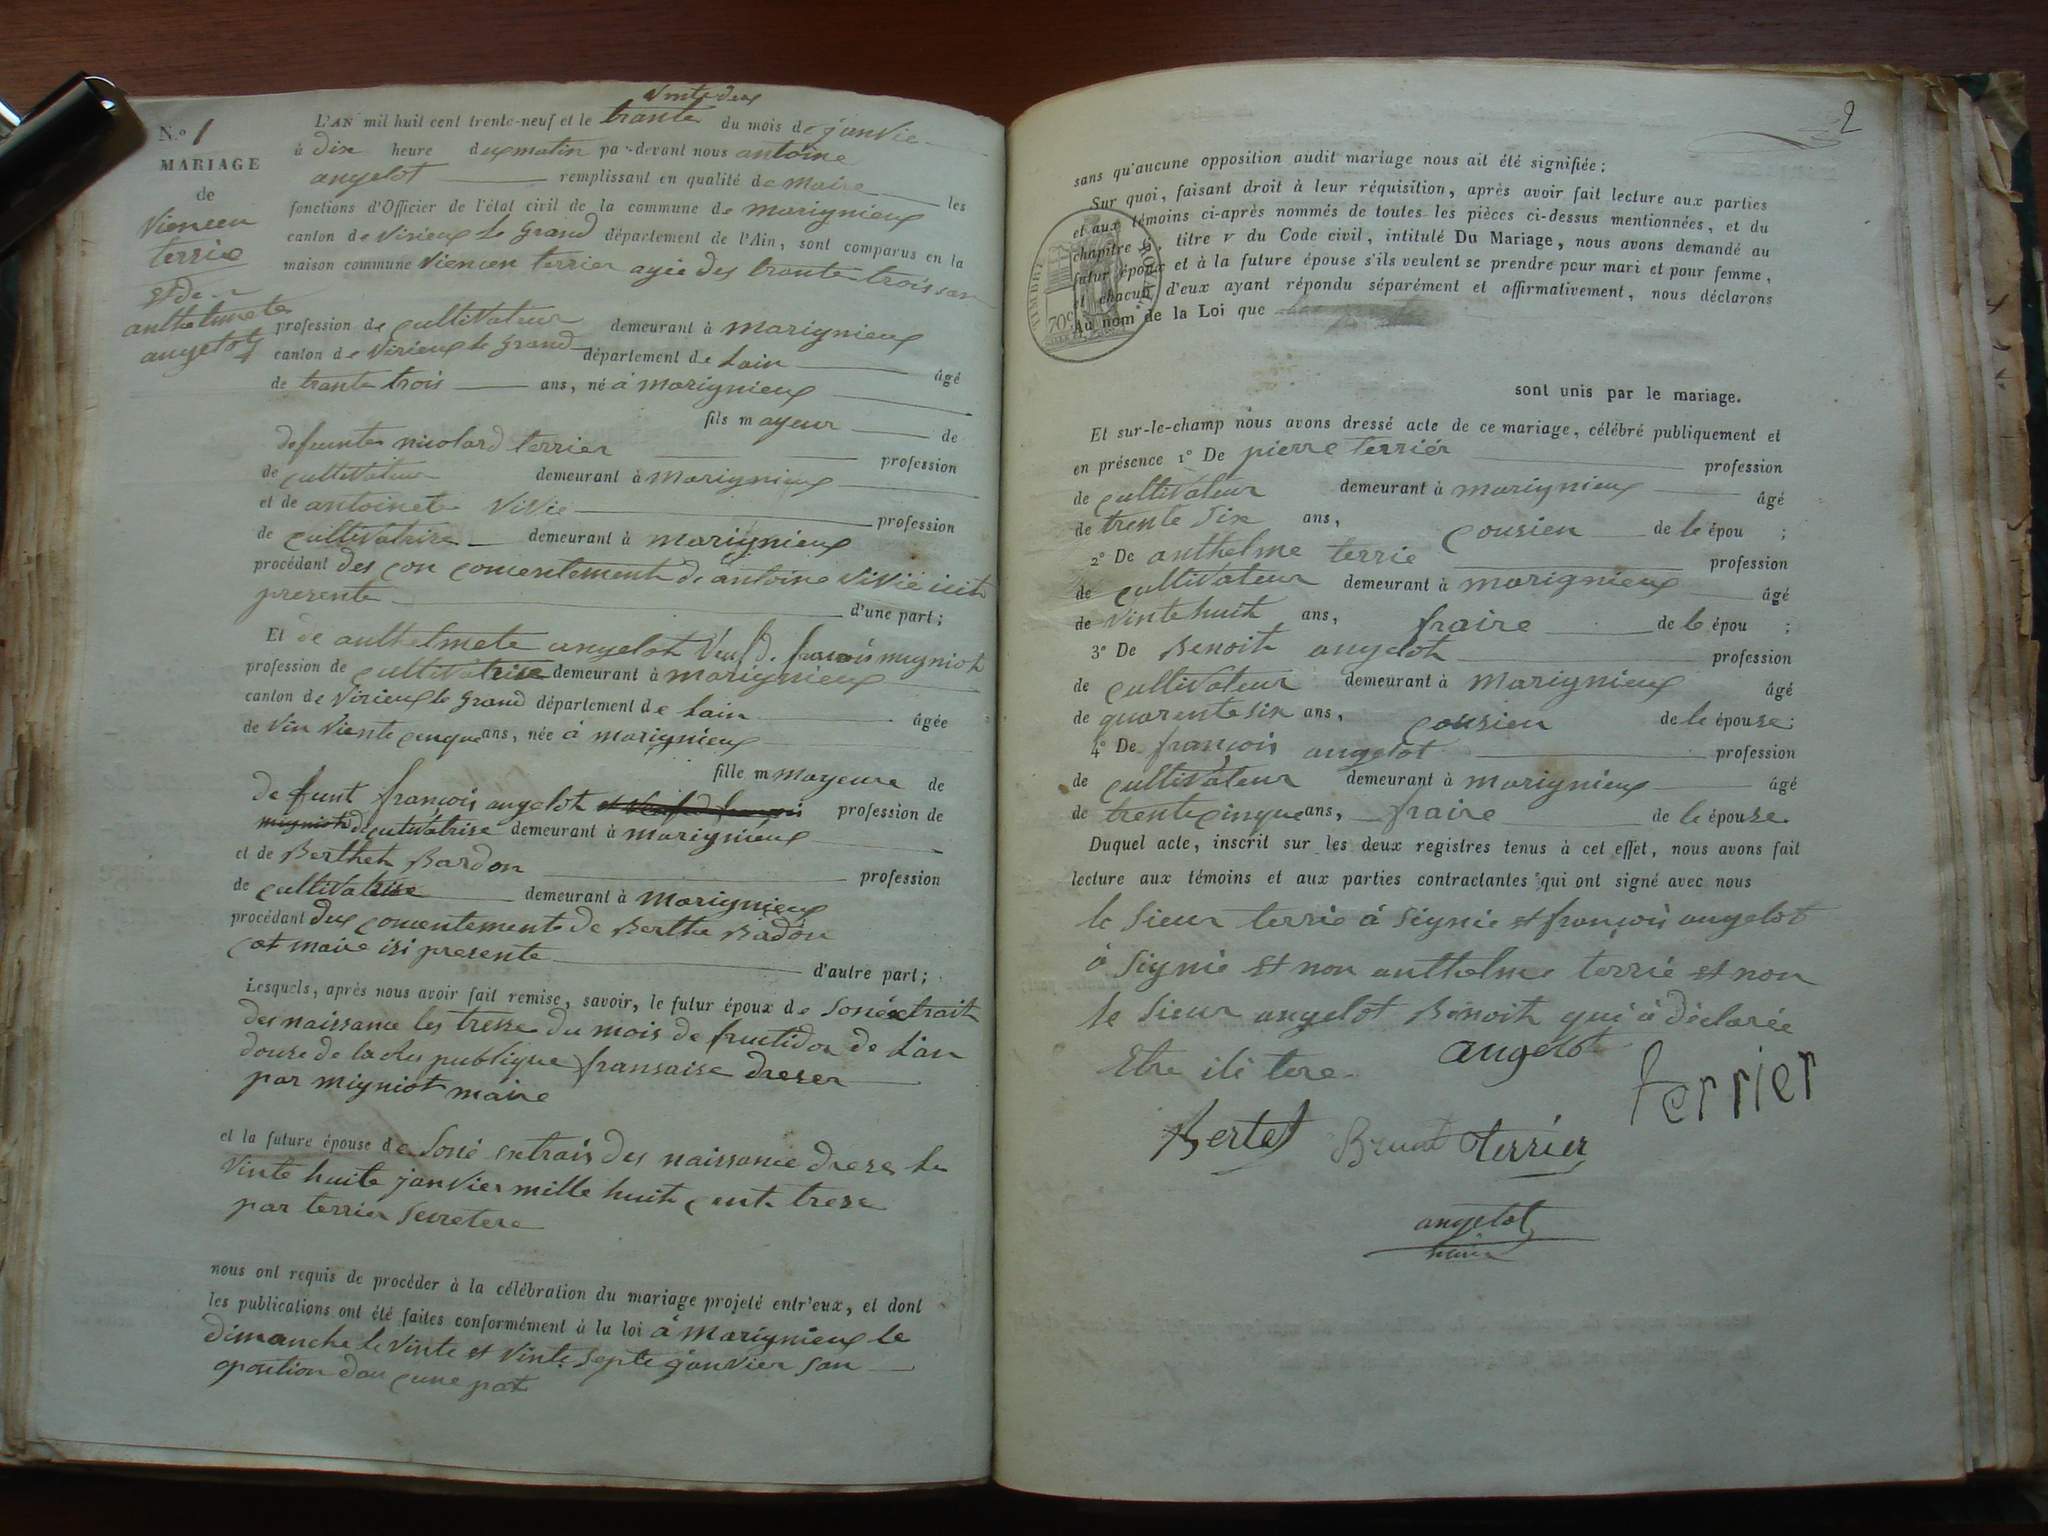 N.° 1
MARIAGE
de
Viencen
terrie
et de
anthelmete
angelot
vinte deux
L'AN mil huit cent trente-neuf et le trante du mois de janvie
à dix heure dux matin par-devant nous antoine
angelot remplissant en qualité de maire les
fonctions d'Officier de l'état civil de la commune de marignieux
canton de Virieux le Grand département de l'Ain, sont comparus en la
maison commune Viencen terrier agée des trante trois san
profession de cultivateur demeurant à marignieux
canton de Virieux le Grand département de Lain âgé
de trante trois ans, né à marignieux
fils mayeur de
defeunte nicolard terrier profession
de cultivateur demeurant à marignieux
et de antoinete Vivié profession
de cultivatrise demeurant à marignieux
procédant des con comentement de antoine Vivié icit
presente d'une part;
Et de anthelmete angelot Veuf d. françois migniot
profession de cultivatrise demeurant à marignieux
canton de Virieux le Grand département de Lain âgée
de Vin Viente cinque ans, née à marignieux
fille mmayeure de
defunt françois angelot et Veuf d françois profession de
migniot d cutivatrise demeurant à marignieux
et de Berthet Bardon profession
de cultivatrise demeurant à marignieux
procédant dux comentemente de Berthe Badon
cat maire isi presente d'autre part;
Lesquels, après nous avoir fait remise, savoir, le futur époux de soné extrait
des naissance les tresse du mois de fructidor de L'an
douse de la Res publique fransaise dreser
par migniot maire
et la future épouse de soné extrais des naissance drese le
vinte huite janvier mille huit cent trese
par terrier secretere
nous ont requis de procéder à la célébration du mariage projeté entr'eux, et dont
les publications ont été faites conformément à la loi à marignieux le
dimanche le vinte et vinte septe janvier san
oposition dau cune pat
2
sans qu'aucune opposition audit mariage nous ait été signifiée:
Sur quoi, faisant droit à leur réquisition, après avoir fait lecture aux parties
et aux témoins ci-après nommés de toutes les pièces ci-dessus mentionnées, et du
chapitre 6, titre V du Code civil, intitulé Du Mariage, nous avons demandé au
futur époux et à la future épouse s'ils veulent se prendre pour mari et pour femme,
et chacun d'eux ayant répondu séparément et affirmativement, nous déclarons
Au nom de la Loi que
TIMBRE ROYAL
70c
sont unis par le mariage.
Et sur-le-champ nous avons dressé acte de ce mariage, célébré publiquement et
en présence 1° De pierre terriér profession
de cultivateur demeurant à marignieux âgé
de trente six ans, cousien de le épou ;
2° De anthelme terrie profession
de cultivateur demeurant à marignieux âgé
de vinte huit ans, fraire de le épou ;
3° De Benoit angelot profession
de cultivateur demeurant à marignieux âgé
de quarente six ans, cousien de le épouse;
4° De françois angelot profession
de cultivateur demeurant à marignieux âgé
de trente cinque ans, fraire de le épouse.
Duquel acte, inscrit sur les deux registres tenus à cet effet, nous avons fait
lecture aux témoins et aux parties contractantes qui ont signé avec nous
le sieur terrie à signie et françois angelot
à signie et non anthelme terrié et non
le sieur angelot Benoit qui à déclarée
Etre ili tere
angelot
terrier
Bertet
Benoit terrier
angelot
maire